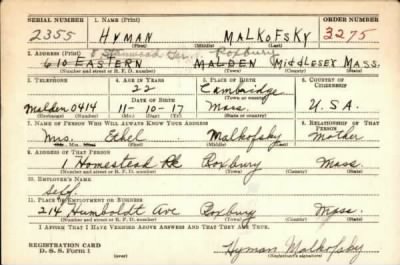 SERIAL NUMBER 1. NAME (Print) ORDER NUMBER
2355 HYMAN MALKOFSKY 3275
(First) (Middle) (Last)
2. ADDRESS (Print) Ter. Roxbury
610 EASTERN MALDEN MIDDLESEX MASS.
(Number and street or R. F. D. number) (Town) (County) (State)
3. TELEPHONE 4. AGE IN YEARS 5. PLACE OF BIRTH 6. COUNTRY OF CITIZENSHIP
22 Cambridge
DATE OF BIRTH (Town or county)
Malden 0414 11-10-17 Mass. U.S.A.
(Exchange) (Number) (Mo.) (Day) (Yr.) (State or country)
7. NAME OF PERSON WHO WILL ALWAYS KNOW YOUR ADDRESS 8. RELATIONSHIP OF THAT PERSON
Mrs. Ethel Malkofsky Mother
(Mr., Mrs., Miss) (First) (Middle) (Last)
9. ADDRESS OF THAT PERSON
1 Homestead Pk Roxbury Mass
(Number and street or R. F. D. number) (Town) (County) (State)
10. EMPLOYER'S NAME
Self.
11. PLACE OF EMPLOYMENT OR BUSINESS
214 Humboldt Ave Roxbury Mass.
(Number and street or R. F. D. number) (Town) (County) (State)
I AFFIRM THAT I HAVE VERIFIED ABOVE ANSWERS AND THAT THEY ARE TRUE.
REGISTRATION CARD Hyman Malkofsky
D. S. S. Form 1 (Registrant's signature)